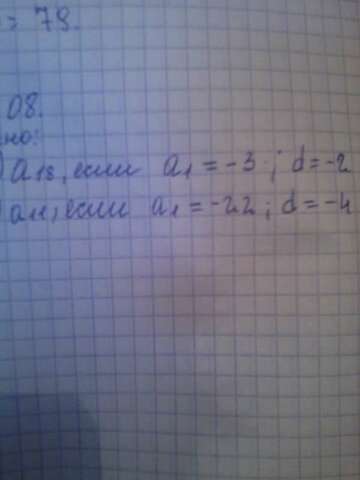 = 79.
08.
но:
) a₁₈, если a₁ = -3 ; d = -2
) a₁₁, если a₁ = -22 ; d = -4